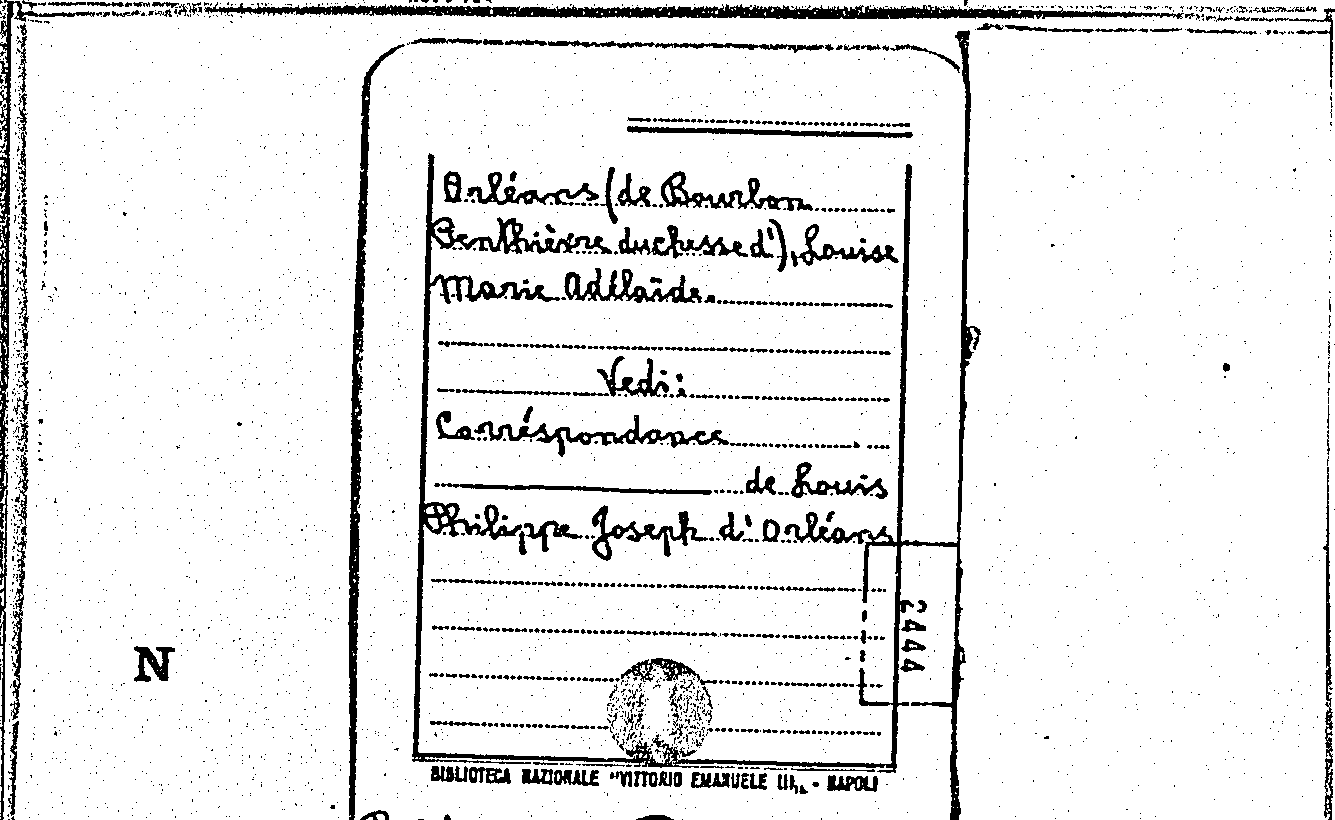 Orléans (de Bourbon
Penthièvre duchesse d'), Louise
Marie Adélaïde.
Vedi:
Corréspondance
de Louis
Philippe Joseph d'Orléans
2444
N
BIBLIOTECA NAZIONALE "VITTORIO EMANUELE III„ - NAPOLI